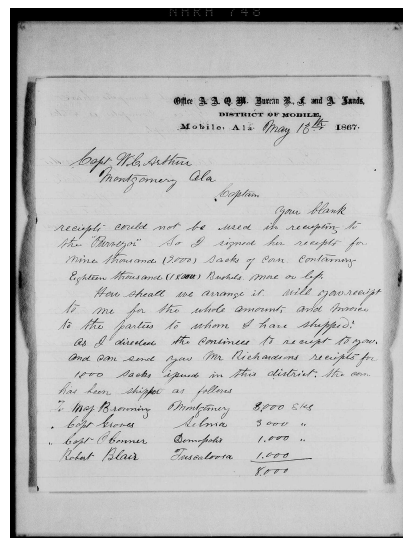 NARA 748
Office A. A. Q. M. Bureau R., F. and A. Lands,
DISTRICT OF MOBILE,
Mobile, Ala May 13th 1867.
Capt W. C. Arthur
Montgomery Ala
Captain
Your blank
receipts could not be used in receipting to
the "Purveyor" So I signed her receipts for
Nine thousand (9000) sacks of corn containing
Eighteen thousand (18000) Bushels more or less
How shall we arrange it. will you receipt
to me for the whole amount, and Invoice
to the parties to whom I have shipped?
as I directed the consinees to receipt to you.
and can send you Mr Richardsons receipts for
1000 sacks issued in this district. The corn
has been shipped as follows
To Maj Browning Montgomery 3,000 Sks
" Capt Groves Selma 3000 "
" Capt C Conner Demopolis 1,000 "
Robert Blair Tuscaloosa 1,000
8,000